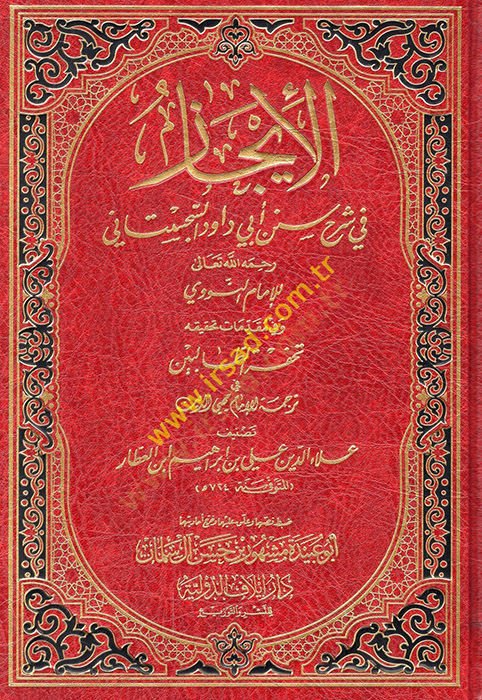 الإيجاز
في شرح سنن أبي داود السجستاني
رحمه الله تعالى
للإمام النووي
وفي مقدمات تحقيقه
تحفة الطالبين
في
ترجمة الإمام محيي الدين
تصنيف
علاء الدين علي بن إبراهيم ابن العطار
(المتوفى سنة ٧٢٤ ه)
ضبط نصها وعلق عليها وخرج أحاديثها
أبو عبيدة مشهور بن حسن آل سلمان
دار إيلاف الدولية
للنشر والتوزيع
www.irsad.com.tr